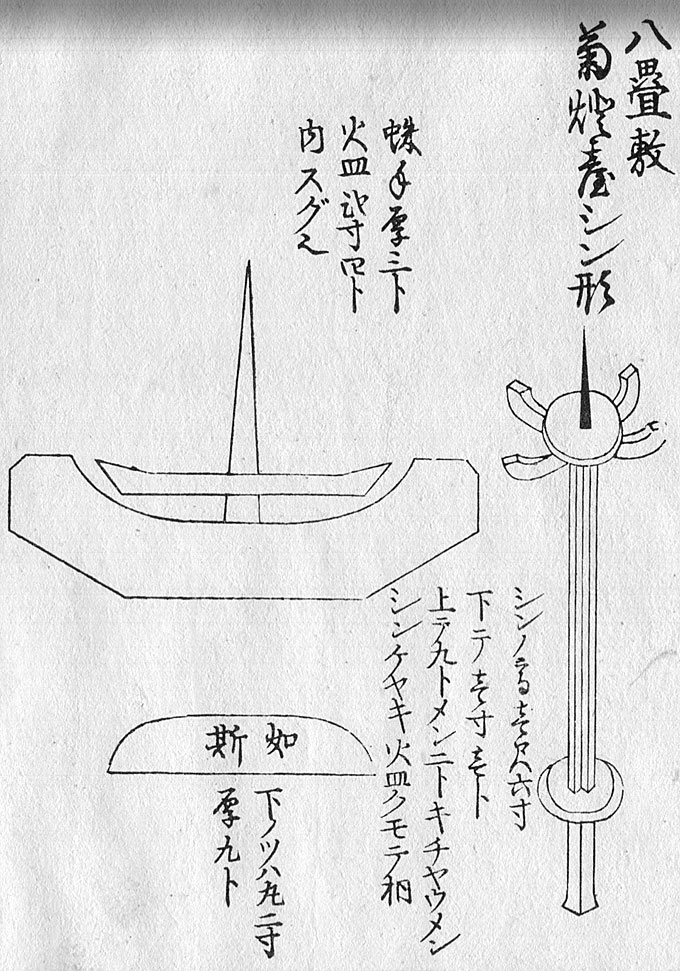 八畳敷
菊燈臺シン形
蛛手厚三ト
火皿弐寸四ト
内スグミ
シンノ高壱尺六寸
下テ壱寸壱ト
上テ九トメン二トキチヤウメン
シンケヤキ火皿クモテ栩
如斯
下ノツハ丸二寸
厚九ト